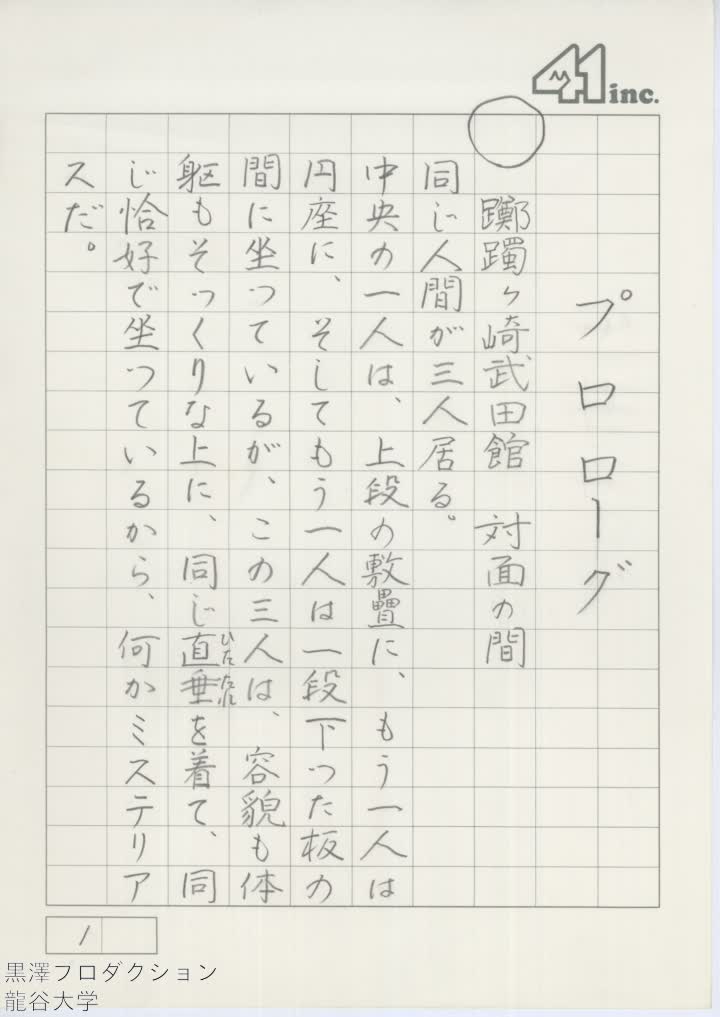 41 inc.
プロローグ
躑躅ヶ崎武田館　対面の間
同じ人間が三人居る。
中央の一人は、上段の敷疊に、もう一人は
円座に、そしてもう一人は一段下った板の
間に坐っているが、この三人は、容貌も体
躯もそっくりな上に、同じ直垂を着て、同
ひたたれ
じ恰好で坐っているから、何かミステリア
スだ。
1
黒澤プロダクション
龍谷大学